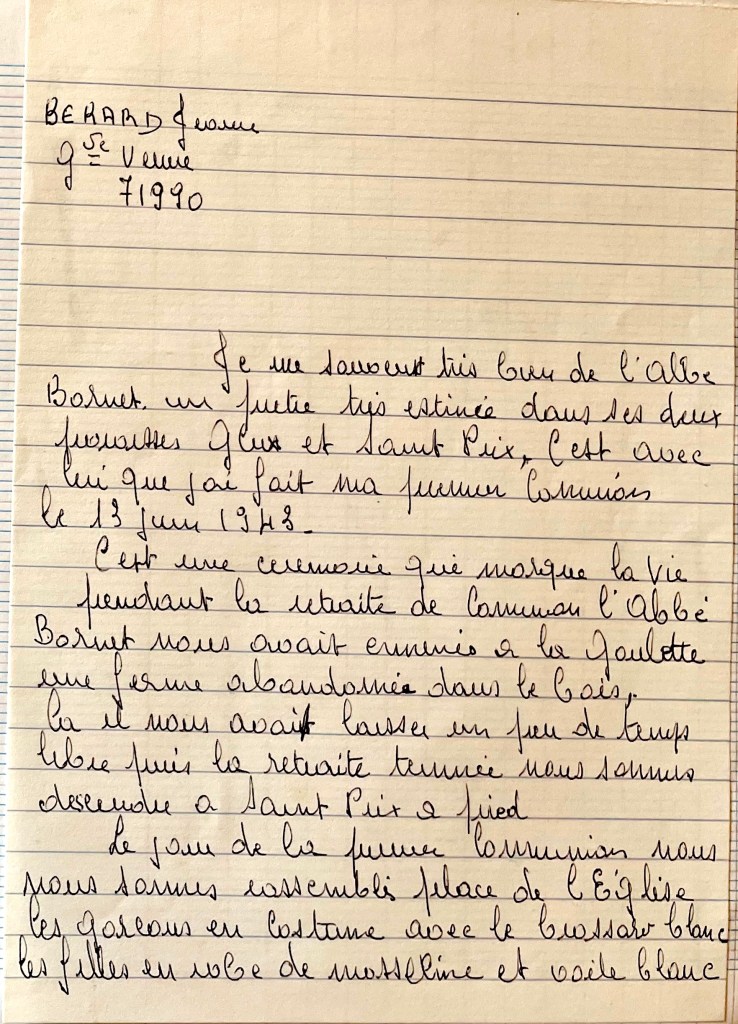 BERARD Jeanne
71990
Je me souvent très bien de l'Abbe
Bornet. un pretre très estinée dans ses deux
parouisses Glux et Saint Prix, C'est avec
lui que jai fait ma premier Communion
le 13 juin 1943.
C'est une ceremonie qui marque la Vie
pendant la retraite de Communion l'Abbé
Bornet nous avait emmenés a la Goulette
une ferme abandonnée dans le bois,
la il nous avait laisser un peu de temps
libre puis la retraite terminée nous sommes
descendu a Saint Prix a pied
Le jour de la premier Communion nous
nous sommes rassemblés place de l'Église
les garcons en Costume avec le brassard blanc
les filles en robe de mosseline et voile blanc